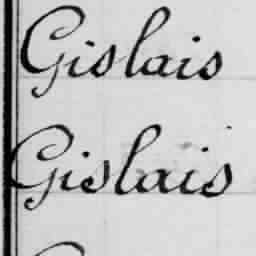 Gislais
Gislais